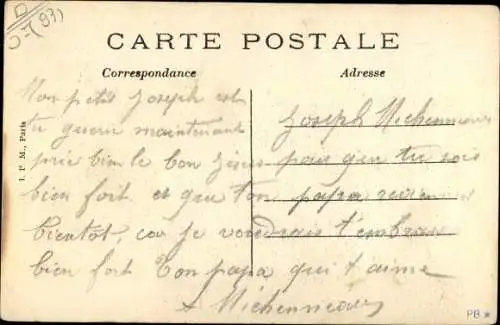 D-7 (93)
CARTE POSTALE
Correspondance
Adresse
I. P. M., Paris
Mon petit Joseph est
tu guerie maintenant
prie bien le bon Jésus pour qu'en tu sois
bien fort et que ton papa revienne
bientôt, car je voudrais t'embrasser
bien fort ton papa qui t'aime
Michenneau
Joseph Michenneau
PB *